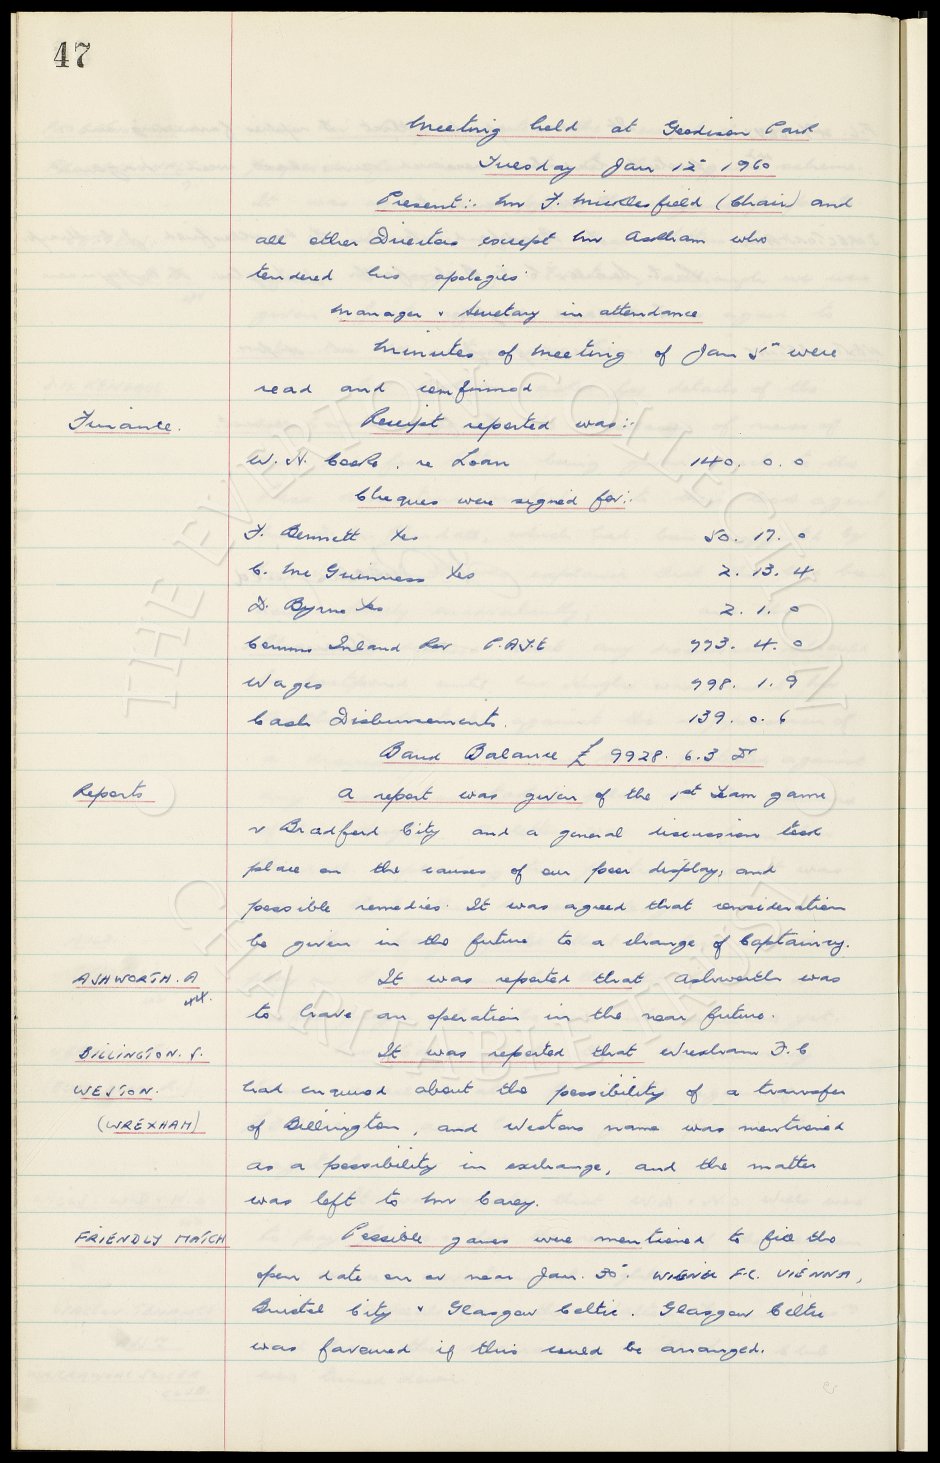 47
Meeting held at Goodison Park
Tuesday Jan 12th 1960
Present:- Mr F. Micklesfield (Chair) and
all other Directors except Mr Askham who
tendered his apologies.
Manager & Secretary in attendance
Minutes of Meeting of Jan 5th were
read and confirmed
Finance. Receipt reported was:-
W. A. Cooke. re Loan 140. 0. 0
Cheques were signed for:-
F. Bennett Yes 50. 17. 0
C. Mc Guinness Yes 2. 13. 4
D. Byrne Yes 2. 1. 0
Comms Inland Rev P.A.Y.E 773. 4. 0
Wages 798. 1. 9
Cash Disbursements. 139. 0. 6
Bank Balance £ 9928. 6. 3 Dr
Reports A report was given of the 1st Team game
v Bradford City and a general discussion took
place on the causes of our poor display, and
possible remedies. It was agreed that consideration
be given in the future to a change of Captaincy.
ASHWORTH. A It was reported that Ashworth was
to have an operation in the near future.
BILLINGTON. S. It was reported that Wrexham F.C
WESTON. had enquired about the possibility of a transfer
(WREXHAM) of Billington, and Westons name was mentioned
as a possibility in exchange, and the matter
was left to Mr Carey.
FRIENDLY MATCH Possible games were mentioned to fill the
open date on or near Jan. 30. WIENER F.C. VIENNA,
Bristol City & Glasgow Celtic. Glasgow Celtic
was favoured if this could be arranged.
© THE EVERTON COLLECTION
CHARITABLE TRUST